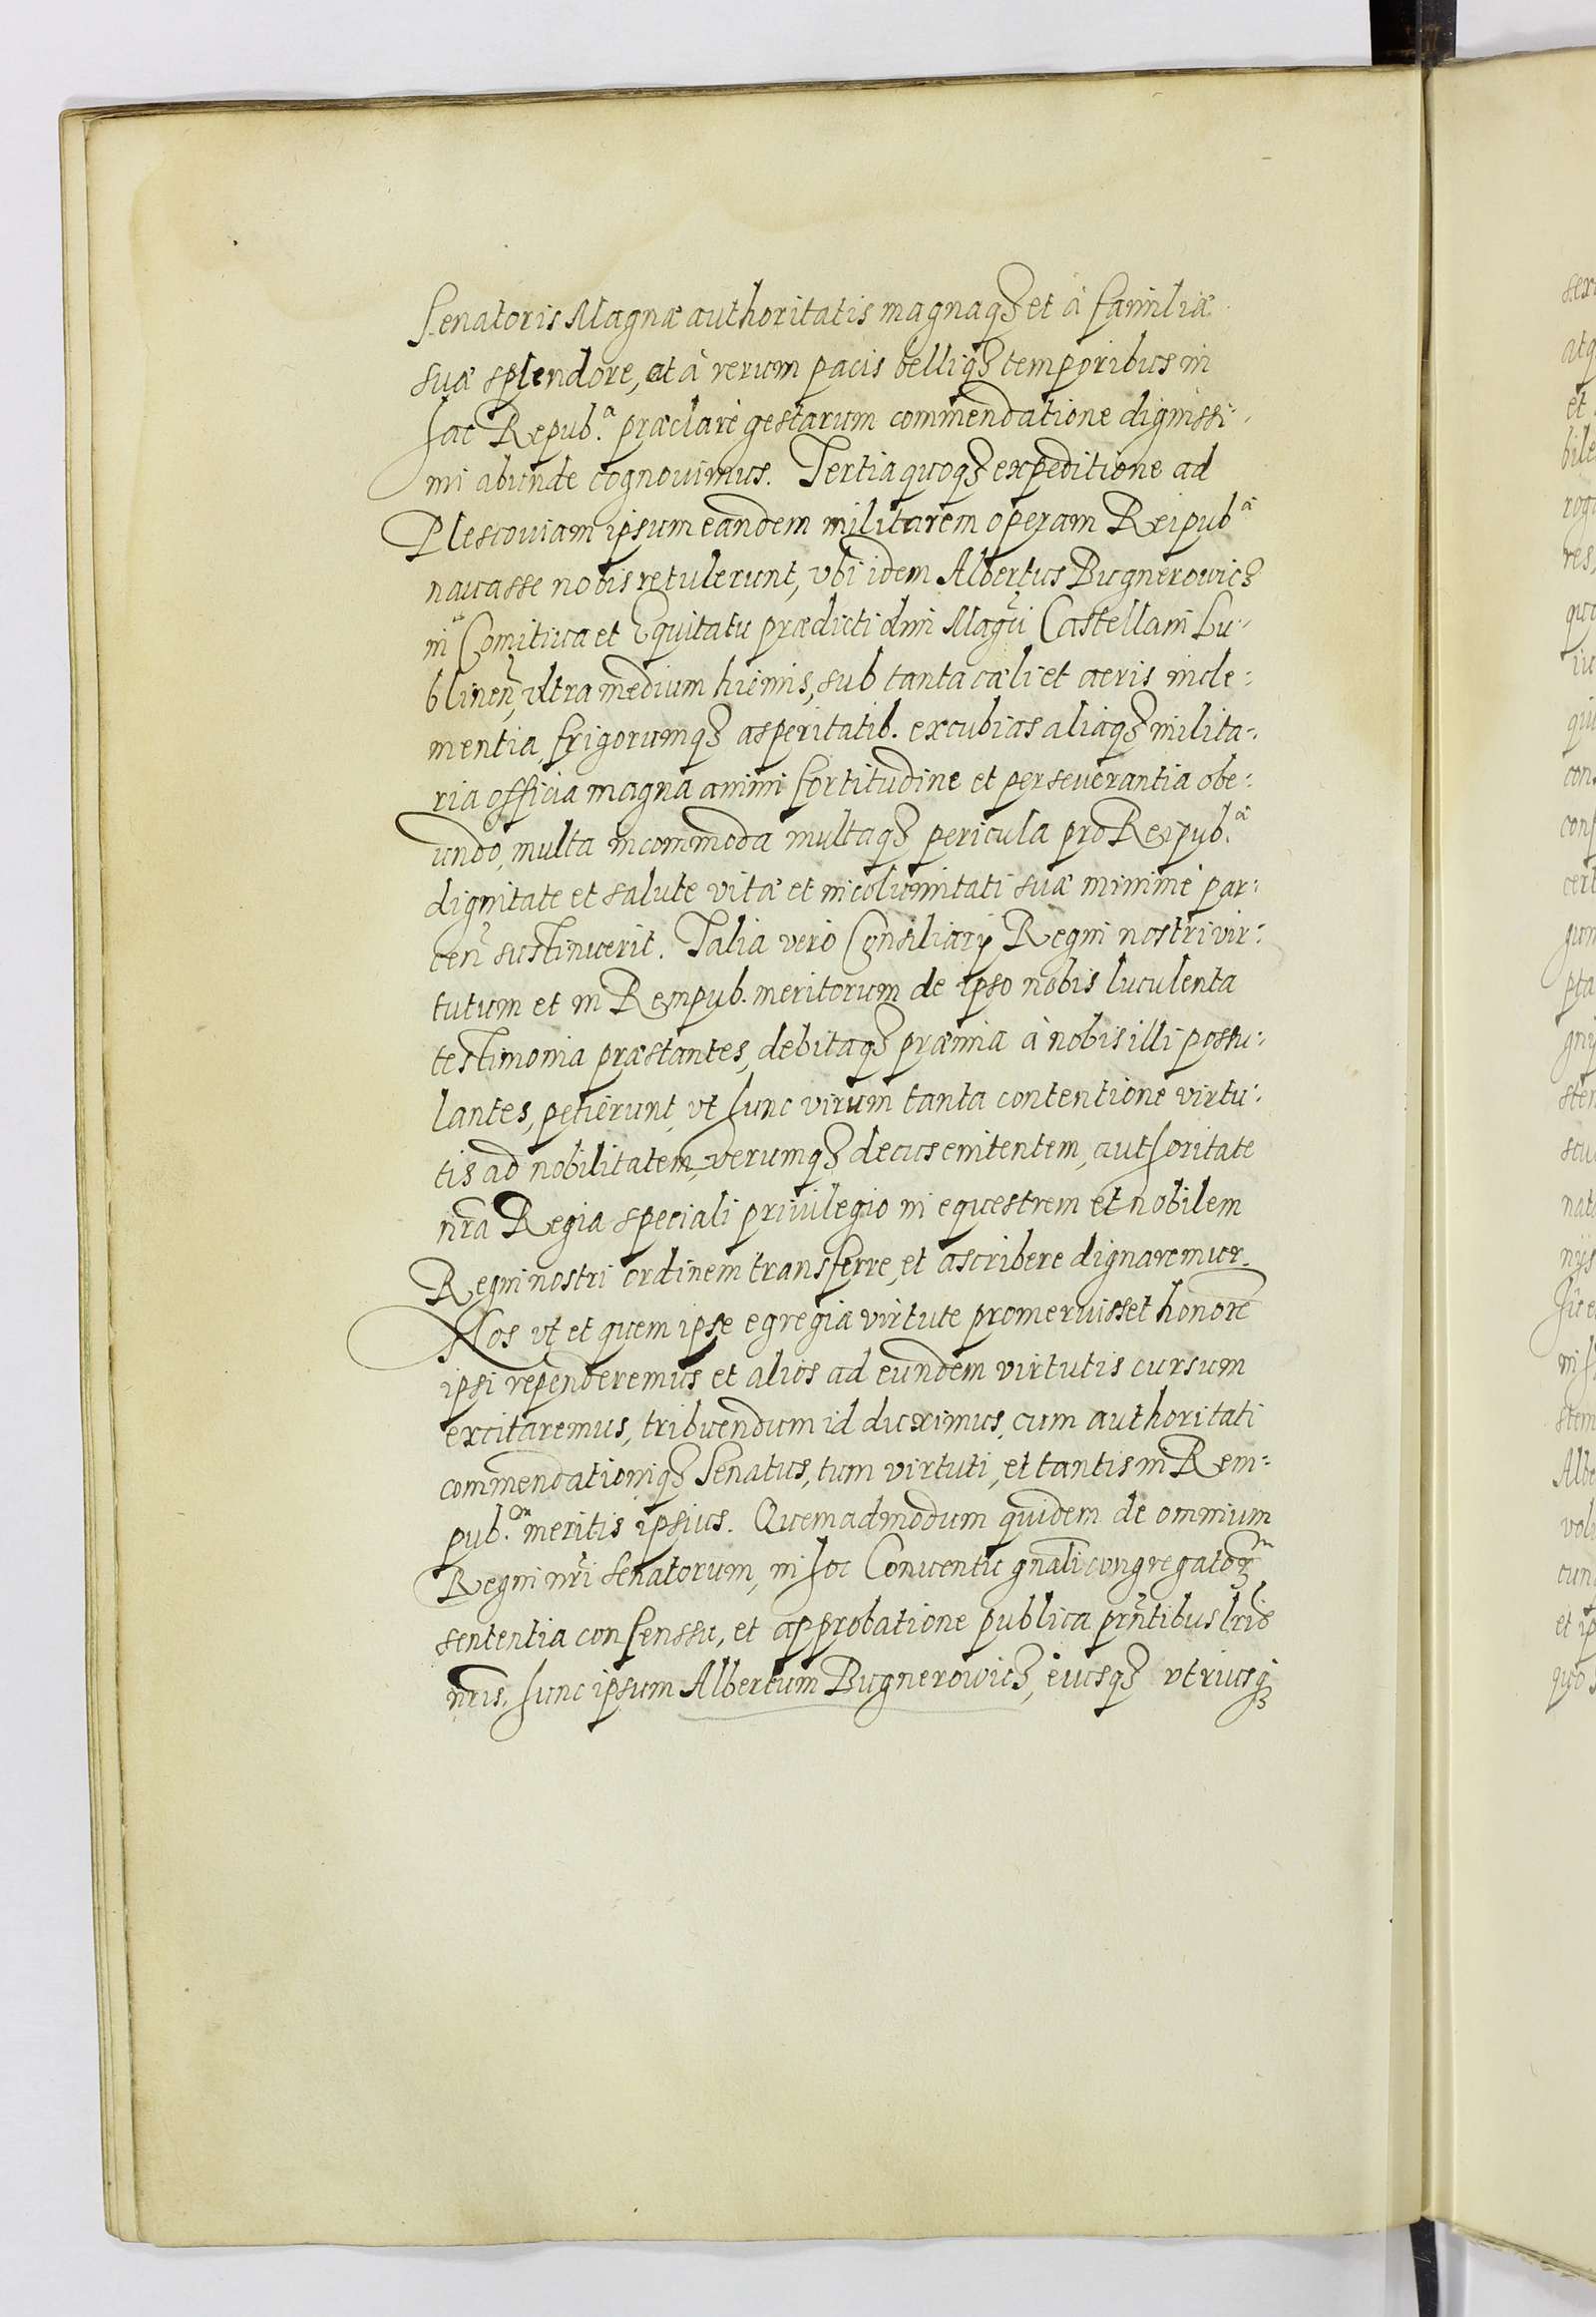 Senatoris Magnæ authoritatis magnaqꝫ et à familiæ
suæ splendore, et à rerum pacis belliqꝫ temporibus in
hac Repub.ᵃ præclarè gestarum commendatione dignissi-
mi abunde cognouimus. Tertia quoqꝫ expeditione ad
Plescouiam ipsum eandem militarem operam Reipubᵃ
nauasse nobis retulerunt, vbi idem Albertus Bugnerowicz
in Comitiua et Equitatu prædicti dni Magci Castellani Lu-
blinen, vltra medium hiemis, sub tanta cæli et aeris incle-
mentia, frigorumqꝫ asperitatib. excubias aliaqꝫ milita-
ria officia magna animi fortitudine et perseuerantia obe-
undo, multa incommoda multaqꝫ pericula pro Reipub.ᵃ
dignitate et salute vitæ et incolumitati suæ minimè par-
cen sustinuerit. Talia vero Consiliarij Regni nostri vir-
tutum et in Rempub. meritorum de ipso nobis luculenta
testimonia præstantes, debitaqꝫ præmia à nobis illi postu-
lantes, petierunt, vt hunc virum tanta contentione virtu-
tis ad nobilitatem, verumqꝫ decus enitentem, authoritate
nra Regia speciali priuilegio in equestrem et nobilem
Regni nostri ordinem transferre, et ascribere dignaremur.
Nos vt et quem ipse egregia virtute promeruisset honore
ipsi rependeremus et alios ad eundem virtutis cursum
excitaremus, tribuendum id duximus, cum authoritati
commendationiqꝫ Senatus, tum virtuti, et tantis in Rem-
pub.ᵃᵐ meritis ipsius. Quemadmodum quidem de omnium
Regni nri Senatorum, in hoc Conuentu gnali congregatoꝝ
sententia consensu, et approbatione publica prntibus lris
nris, hunc ipsum Albertum Bugnerowicz, eiusqꝫ vtriusqꝫ